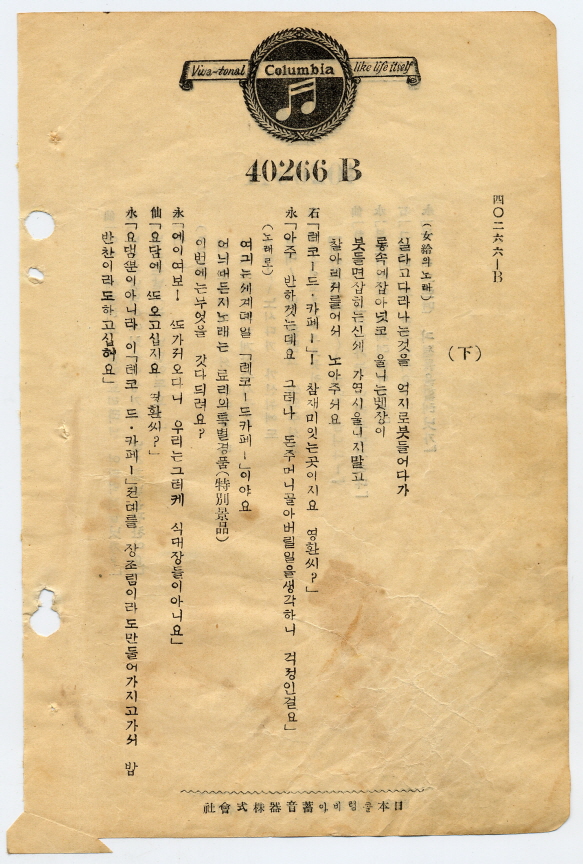 Viva-tonal Columbia like life itself
40266 B
四〇二六六—B
(下)
永(女給의노래)
실타고다라나는것을 억지로붓들어다가
롱속에잡아넛코 울니는벳장이
붓들면잡히는신세 가엽시울니지말고
찰아리커를어서 노아주서요
石「레코—드・카페—」! 참재미잇는곳이지요 영환씨?」
永「아주 반하겟는데요 그러나 돈주머니골아버릴일을생각하니 걱정인걸요」
(노래로)
여긔는세계뎨일 「레코—드카페—」이야요
어늬때든지노래는 료리의특별경품(特別景品)
이번에는무엇을 갓다듸려요?
永「에이여보! ᄯᅩ가저오다니 우리는그러케 식대장들이아니요」
仙「요담에 ᄯᅩ오고십지요 영환씨?」
永「요담ᄲᅮᆫ이아니라 이「레코—드・카페—」전톄를 장조림이라도만들어가지고가서 밥
반찬이라도하고십허요」
日本콜럼비아蓄音器株式會社